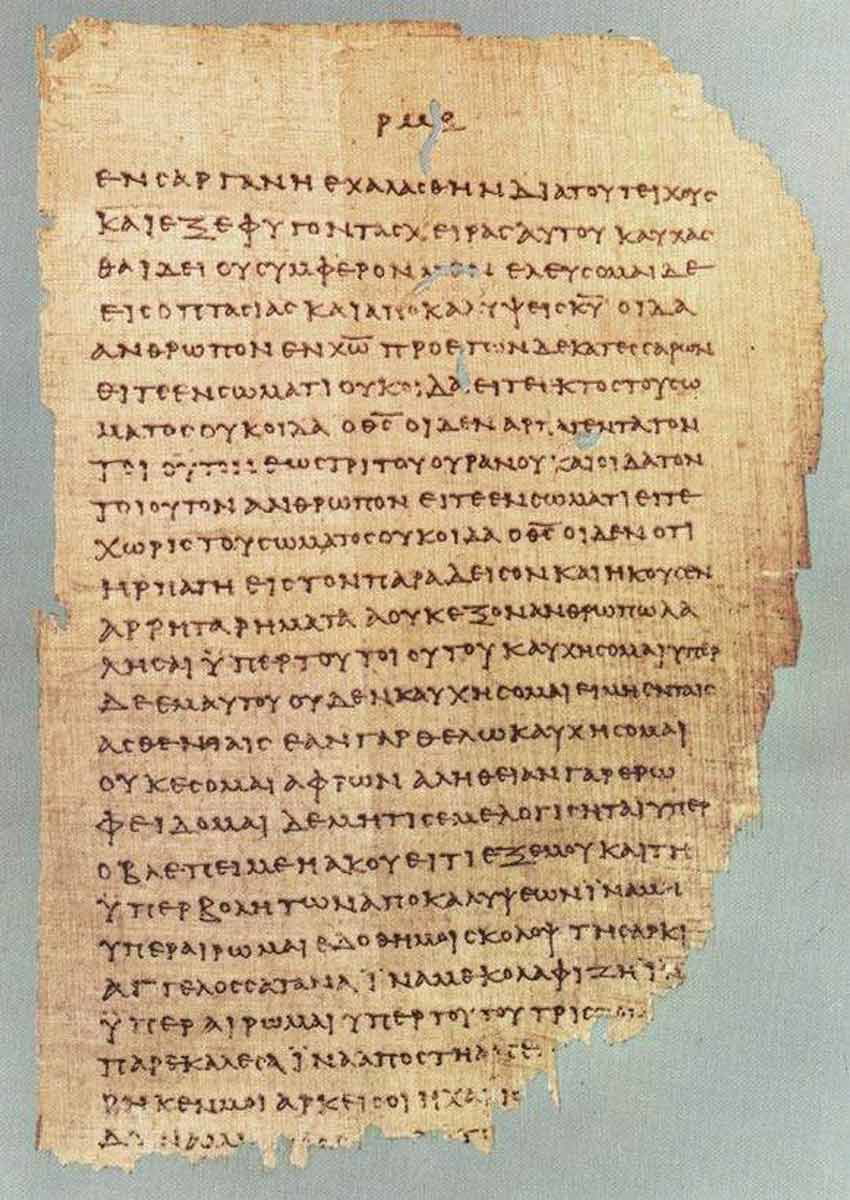 ρμε
ενσαργανηεχαλασθηνδιατουτειχους
καιεξεφυγοντασχειρασαυτουκαυχασ
θαιδειουσυμφερονμενελευσομαιδε
εισοπτασιασκαιαποκαλυψεισκ̅υ̅οιδα
ανθρωπονενχ̅ω̅προετωνδεκατεσσαρων
ειτεενσωματιουκοιδαειτεεκτοστουσω
ματοσουκοιδαοθ̅σ̅οιδεναρπαγεντατον
τοιουτονεωστριτουουρανουκαιοιδατον
τοιουτονανθρωπονειτεενσωματιειτε
χωριστουσωματοσουκοιδαοθ̅σ̅οιδενοτι
ηρπαγηειστονπαραδεισονκαιηκουσεν
αρρηταρηματααουκεξονανθρωπωλα
λησαιϋπερτουτοιουτουκαυχησομαιυπερ
δεεμαυτουουδενκαυχησομαιειμηενταισ
ασθενιαισεανγαρθελωκαυχησομαι
ουκεσομαιαφρωναληθειανγαρερω
φειδομαιδεμητισεμελογισηταιυπερ
οβλεπειμεηακουειτιεξεμουκαιτη
ϋπερβολητωναποκαλυψεωνϊναμη
υπεραιρωμαιεδοθημοισκολοψτησαρκι
αγγελοσσαταναϊναμεκολαφιζηϊνα
ϋπεραιρωμαιυπερτουτουτρισ
παρεκαλεσαϊνααποστη
ρηκενμοιαρκεισοιηχαρισ